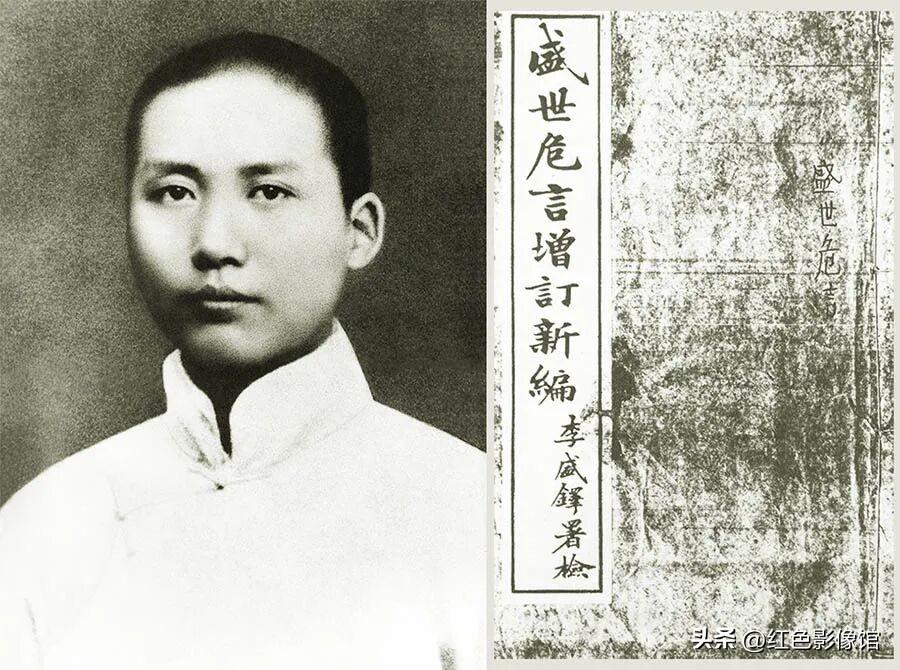 盛世危言增訂新編
李盛鐸署檢
盛世危言
头条 @红色影像馆